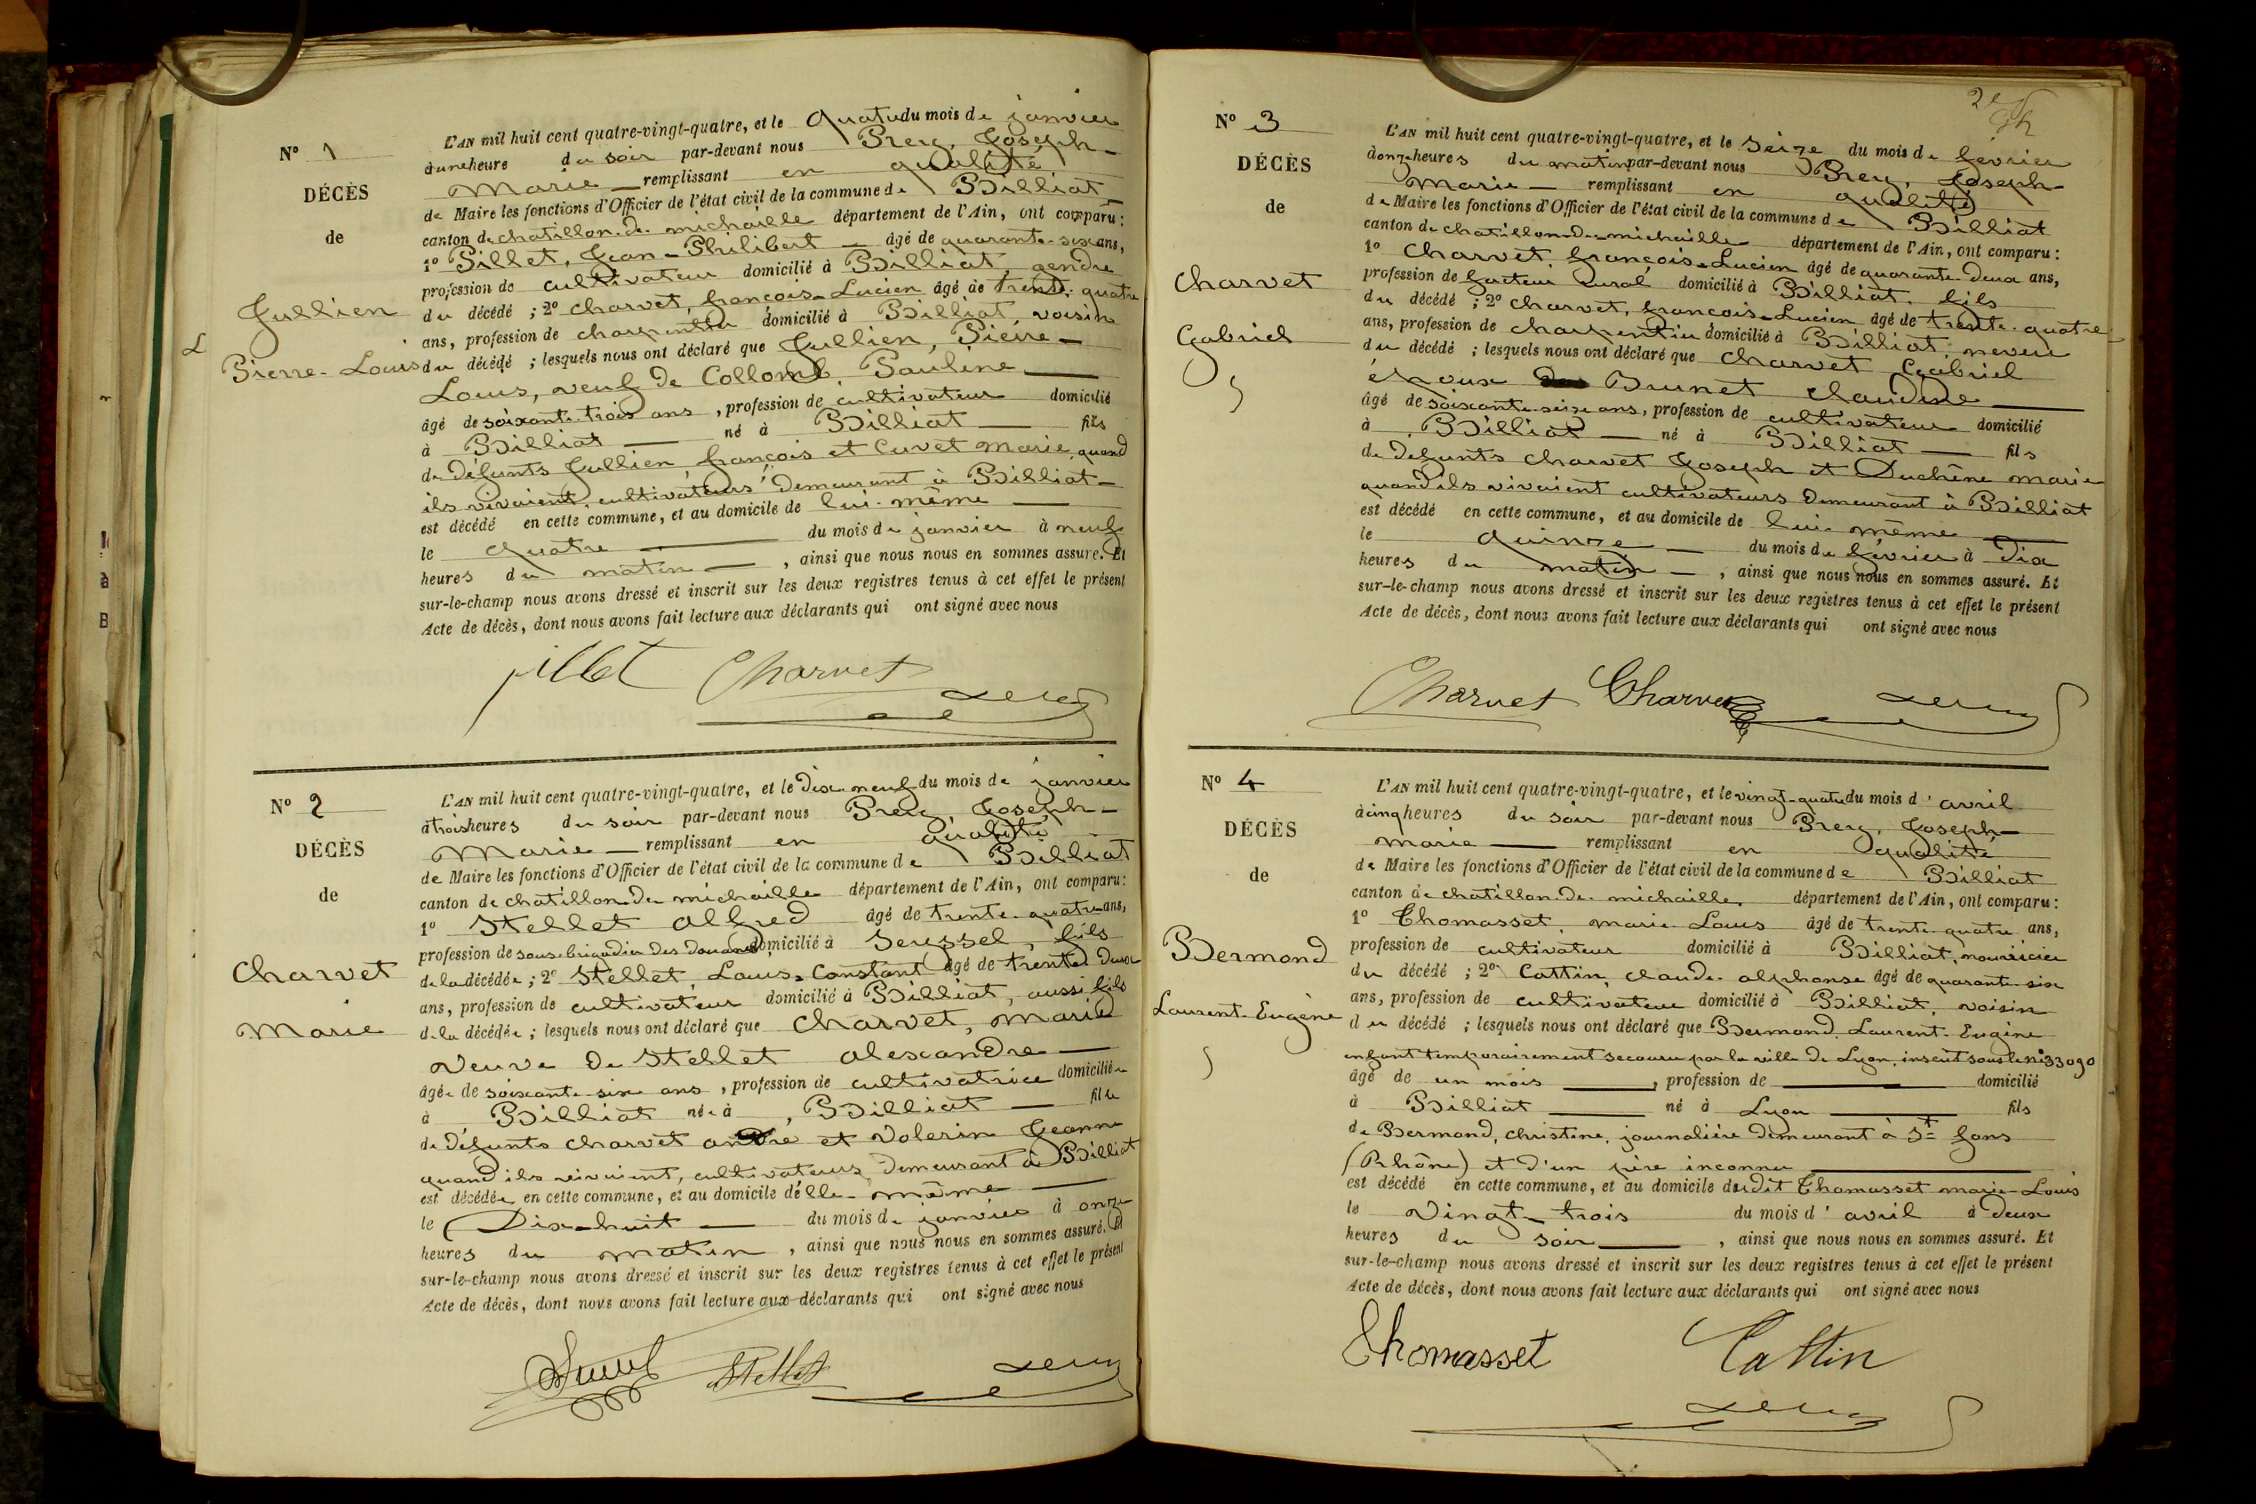 N° 1
DÉCÈS
de
Jullien
Pierre-Louis
L'AN mil huit cent quatre-vingt-quatre, et le quatre du mois de janvier
à une heure du soir par-devant nous Prery, Joseph-
Marie — remplissant en qualité
de Maire les fonctions d'Officier de l'état civil de la commune de Billiat
canton de chatillon-de-michaille département de l'Ain, ont comparu :
1° Pillet, Jean-Philibert — âgé de quarante-six ans,
profession de cultivateur domicilié à Billiat, gendre
du décédé ; 2° charvet, françois-Lucien âgé de trente-quatre
ans, profession de charpentier domicilié à Billiat, voisin
du décédé ; lesquels nous ont déclaré que Jullien, Pierre-
Louis, veuf de Collomb, Pauline —
âgé de soixante-trois ans, profession de cultivateur domicilié
à Billiat — né à Billiat — fils
de défunts Jullien, françois et Cuvet marie, quand
ils vivaient, cultivateurs demeurant à Billiat —
est décédé en cette commune, et au domicile de lui-même —
le quatre — du mois de janvier à neuf
heures du matin —, ainsi que nous nous en sommes assuré. Et
sur-le-champ nous avons dressé et inscrit sur les deux registres tenus à cet effet le présent
Acte de décès, dont nous avons fait lecture aux déclarants qui ont signé avec nous
pillet Charvet
N° 2
DÉCÈS
de
Charvet
Marie
L'AN mil huit cent quatre-vingt-quatre, et le dix-neuf du mois de janvier
à trois heures du soir par-devant nous Prery, Joseph-
Marie — remplissant en qualité
de Maire les fonctions d'Officier de l'état civil de la commune de Billiat
canton de chatillon-de-michaille département de l'Ain, ont comparu :
1° Stellet Alfred âgé de trente-quatre ans,
profession de sous-brigadier des douanes domicilié à Seyssel, fils
de la décédée ; 2° Stellet, Louis-Constant âgé de trente-deux
ans, profession de cultivateur domicilié à Billiat, aussi fils
de la décédée ; lesquels nous ont déclaré que Charvet, Marie
veuve de Stellet Alexandre —
âgée de soixante-six ans, profession de cultivatrice domiciliée
à Billiat née à Billiat — fille
de défunts charvet andré et Valerin Jeanne
quand ils vivaient, cultivateurs demeurant à Billiat
est décédée en cette commune, et au domicile d'elle-même —
le Dix-huit — du mois de janvier à onze
heures du matin, ainsi que nous nous en sommes assuré. Et
sur-le-champ nous avons dressé et inscrit sur les deux registres tenus à cet effet le présent
Acte de décès, dont nous avons fait lecture aux déclarants qui ont signé avec nous
Stellet
2e
N° 3
DÉCÈS
de
Charvet
Gabriel
L'AN mil huit cent quatre-vingt-quatre, et le Seize du mois de février
à onze heures du matin par-devant nous Prery, Joseph-
Marie — remplissant en qualité
de Maire les fonctions d'Officier de l'état civil de la commune de Billiat
canton de chatillon-de-michaille département de l'Ain, ont comparu :
1° Charvet, françois-Lucien âgé de quarante-deux ans,
profession de facteur rural domicilié à Billiat, fils
du décédé ; 2° charvet, françois-Lucien âgé de trente-quatre
ans, profession de charpentier domicilié à Billiat, neveu
du décédé ; lesquels nous ont déclaré que Charvet Gabriel
époux Brunet Claudine —
âgé de soixante-seize ans, profession de cultivateur domicilié
à Billiat — né à Billiat — fils
de défunts charvet Joseph et Duchêne marie
quand ils vivaient cultivateurs demeurant à Billiat
est décédé en cette commune, et au domicile de lui-même —
le quinze — du mois de février à dix
heures du matin —, ainsi que nous nous en sommes assuré. Et
sur-le-champ nous avons dressé et inscrit sur les deux registres tenus à cet effet le présent
Acte de décès, dont nous avons fait lecture aux déclarants qui ont signé avec nous
Charvet Charvet
N° 4
DÉCÈS
de
Bermond
Laurent-Eugène
L'AN mil huit cent quatre-vingt-quatre, et le vingt-quatre du mois d'avril
à cinq heures du soir par-devant nous Prery, Joseph-
marie — remplissant en qualité
de Maire les fonctions d'Officier de l'état civil de la commune de Billiat
canton de chatillon-de-michaille département de l'Ain, ont comparu :
1° Thomasset, marie-Louis âgé de trente-quatre ans,
profession de cultivateur domicilié à Billiat, nourricier
du décédé ; 2° Cattin, claude-alphonse âgé de quarante-six
ans, profession de cultivateur domicilié à Billiat, voisin
du décédé ; lesquels nous ont déclaré que Bermond, Laurent-Eugène
enfant temporairement secouru par la ville de Lyon, inscrit sous le n° 33090
âgé de un mois —, profession de — domicilié
à Billiat — né à Lyon — fils
de Bermond, Christine, journalière demeurant à St fons
(Rhône) et d'un père inconnu —
est décédé en cette commune, et au domicile du dit Thomasset marie-Louis
le vingt-trois du mois d'avril à deux
heures du soir —, ainsi que nous nous en sommes assuré. Et
sur-le-champ nous avons dressé et inscrit sur les deux registres tenus à cet effet le présent
Acte de décès, dont nous avons fait lecture aux déclarants qui ont signé avec nous
Thomasset Cattin